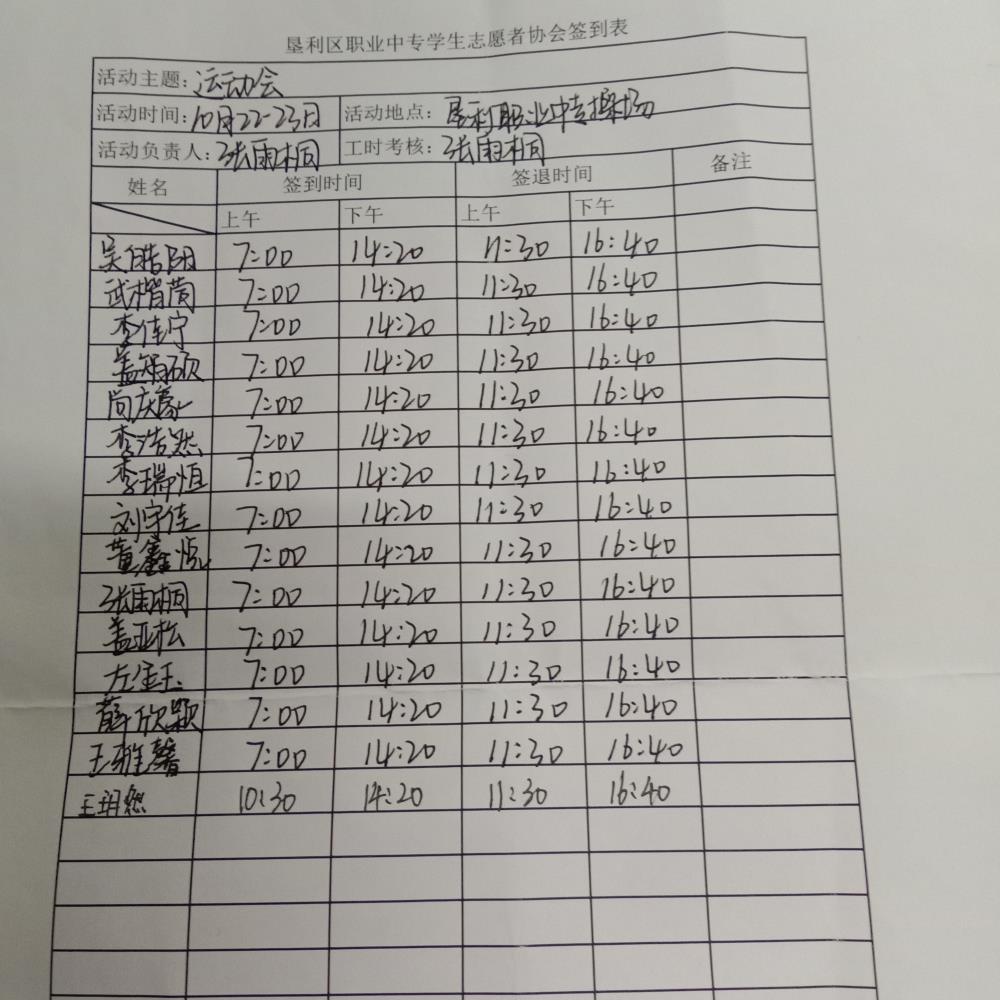 垦利区职业中专学生志愿者协会签到表
活动主题：运动会
活动时间：10月22-23日 活动地点：垦利职业中专操场
活动负责人：张雨桐 工时考核：张雨桐
姓名 签到时间 签退时间 备注
上午 下午 上午 下午
吴皓阳 7:00 14:20 11:30 16:40
武楷茼 7:00 14:20 11:30 16:40
李佳宁 7:00 14:20 11:30 16:40
盖硕 7:00 14:20 11:30 16:40
尚庆豪 7:00 14:20 11:30 16:40
李浩然 7:00 14:20 11:30 16:40
李瑞恒 7:00 14:20 11:30 16:40
刘宇佳 7:00 14:20 11:30 16:40
董鑫悦 7:00 14:20 11:30 16:40
张雨桐 7:00 14:20 11:30 16:40
盖亚松 7:00 14:20 11:30 16:40
左佳玉 7:00 14:20 11:30 16:40
薛欣颖 7:00 14:20 11:30 16:40
王雅馨 7:00 14:20 11:30 16:40
王玥然 10:30 14:20 11:30 16:40